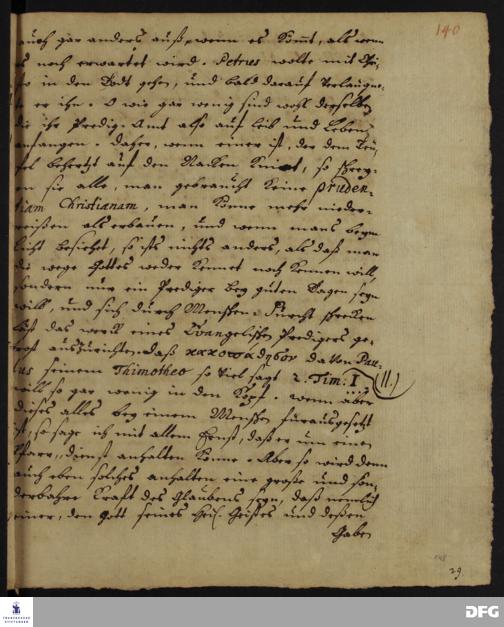 140
auch gar anders auß, wenn es kömt, als wenn
es noch erwartet wird. Petrus wolte mit Chri-
sto in den Todt gehen, und bald darauf verleugne-
te er ihn. O wie gar wenig sind wohl derselben
die ihr Predig-Amt also auf Leib und Leben
anfangen. Daher, wenn einer ist, der dem Teu-
fel behertzt auf den Nacken kniet, so schrey-
en sie alle, man gebraucht keine pruden-
tiam Christianam, man könne mehr nieder-
reißen als erbauen, und wenn mans beym
Licht besiehet, so ists nichts anders, als daß man
die wege Gottes weder kennet noch kennen will,
sondern nur ein Prediger bey guten Tagen seyn
will, und sich durch Menschen-Furcht schrecken
läst das werck eines Evangelischen Predigers ge-
trost auszurichten. daß κακοπάθησον davon Pau-
lus seinem Thimotheo so viel sagt 2. Tim. I. (II.)
will so gar wenig in den Kopf. wenn aber
dieses alles bey einem Menschen fürausgesetzt
ist, so sage ich mit allem Ernst, daß er um einen
Pfarr-dienst anhalten könne. Aber so wird denn
auch eben solches anhalten eine große und son-
derbahre Kraft des Glaubens seyn, daß nemlich
einer, den Gott seines heil. Geistes und deßen
Gaben
148
29.
FRANCKESCHE
STIFTUNGEN
DFG